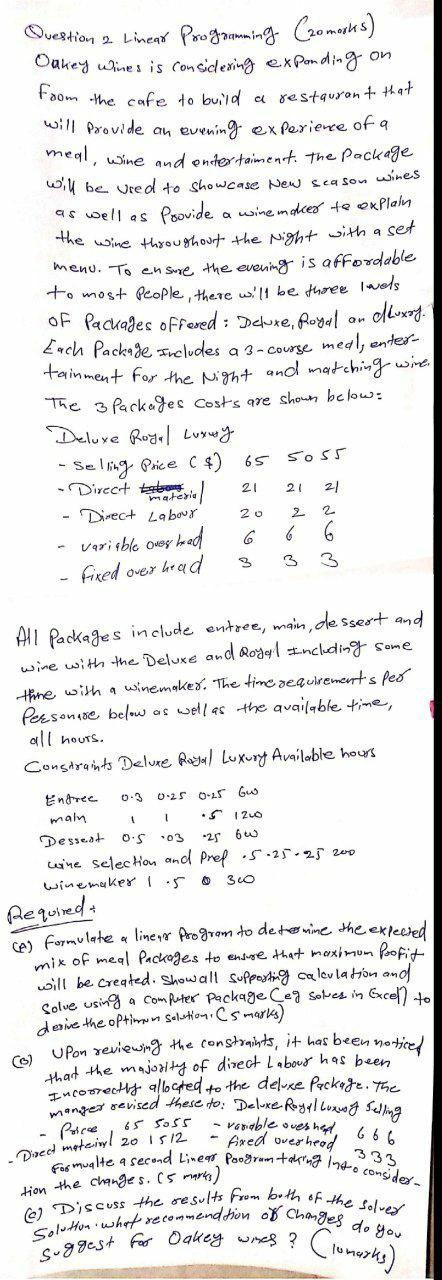 Question 2 Linear Programming. (20 marks)
Oakey wines is considering expanding on
from the cafe to build a restaurant that
will Provide an evening experience of a
meal, wine and entertaiment. The Package
will be used to showcase New season wines
as well as Provide a winemaker to explain
the wine throughout the Night with a set
menu. To ensure the evening is affordable
to most People, there will be three levels
of Packages offered: Deluxe, Royal an dLuxury.
Each Package Includes a 3-course meal, enter-
tainment for the Night and matching wine.
The 3 Packages costs are shown below:
Deluxe Royal Luxury
- Selling Price ($) 65 50 55
- Direct material 21 21 21
- Direct Labour 20 2 2
- variable overhead 6 6 6
- fixed over head 3 3 3
All Packages include entree, main, dessert and
wine with the Deluxe and Royal Including some
time with a winemaker. The time requirements Per
Person are below as well as the available time,
all hours.
Constraints Deluxe Royal Luxury Available hours
Entree 0.3 0.25 0.25 600
main 1 1 .5 1200
Dessert 0.5 .03 .25 600
wine selection and Prep .5 .25 .25 200
winemaker 1 .5 0 300
Required:
(A) Formulate a linear Program to determine the expected
mix of meal Packages to ensure that maximum Profit
will be created. Show all supporting calculation and
solve using a computer package (eg solver in Excel) to
derive the optimum solution. (5 marks)
(B) Upon reviewing the constraints, it has been noticed
that the majority of direct Labour has been
Incorrectly allocated to the deluxe Package. The
manger revised these to: Deluxe Royal Luxury Selling
- Price 65 50 55 - variable overhead 6 6 6
- Direct material 20 15 12 - fixed overhead 3 3 3
Formualte a second Linear Program taking Into consider-
tion the changes. (5 marks)
(C) Discuss the results from both of the solver
Solution. what recommendtion of changes do you
suggest for Oakey wines? (10 marks)